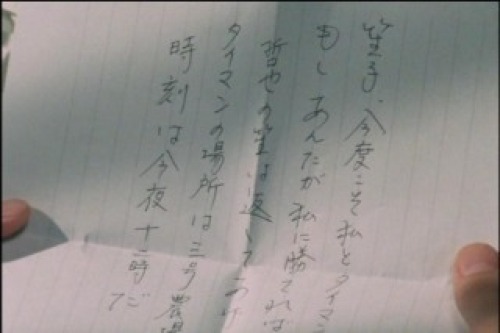 笙子、今度こそ私とタイマン
もしあんたが私に勝てれば
哲也の笙は返してあげ
タイマンの場所は三号農場
時刻は今夜十二時だ